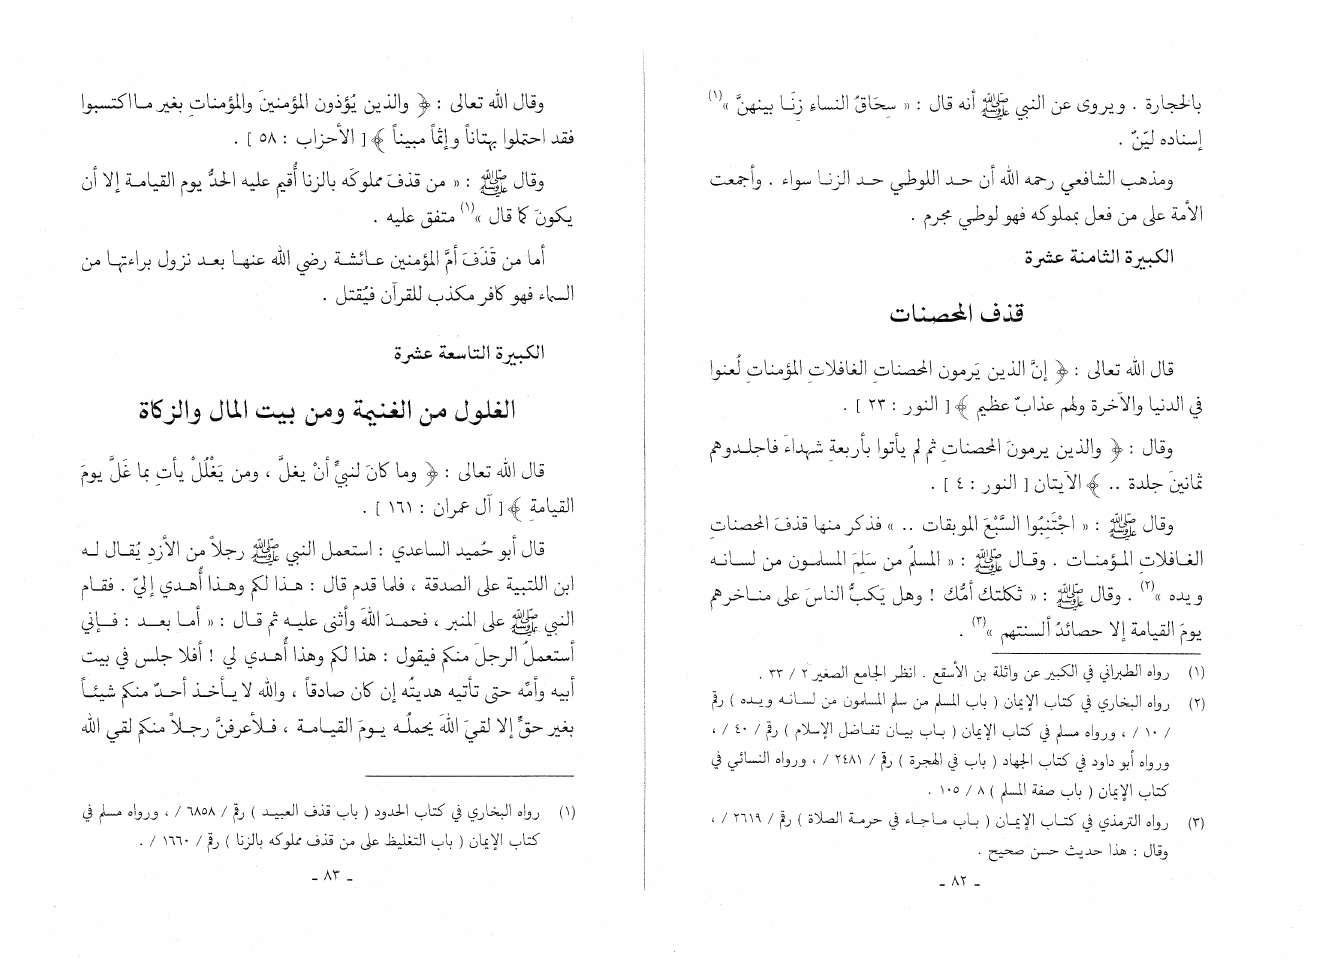 بالحجارة . ويروى عن النبي ﷺ أنه قال : « سِحَاقُ النساءِ زِنَا بينهنَّ »(١)
إسناده ليّنٌ .
ومذهب الشافعي رحمه الله أن حد اللوطي حد الزنا سواء . وأجمعت
الأمة على من فعل بمملوكه فهو لوطي مجرم .
الكبيرة الثامنة عشرة
قذف المحصنات
قال الله تعالى : ﴿ إنَّ الذين يَرمون المحصناتِ الغافلاتِ المؤمناتِ لُعنوا
في الدنيا والآخرة ولهم عذابٌ عظيم ﴾ [ النور : ٢٣ ] .
وقال : ﴿ والذين يرمونَ المحصناتِ ثم لم يأتوا بأربعةِ شهداءَ فاجلدوهم
ثمانينَ جلدة .. ﴾ الآيتان [ النور : ٤ ] .
وقال ﷺ : « اجْتَنِبُوا السَّبْعَ الموبقات .. » فذكر منها قذفَ المحصناتِ
الغافلاتِ المؤمنات . وقال ﷺ : « المسلمُ من سَلِمَ المسلمون من لسانه
ويده »(٢) . وقال ﷺ : « ثكلتك أمُّك ! وهل يَكبُّ الناسَ على مناخرهم
يومَ القيامة إلا حصائدُ ألسنتهم »(٣) .
(١) رواه الطبراني في الكبير عن واثلة بن الأسقع . انظر الجامع الصغير ٢ / ٣٣ .
(٢) رواه البخاري في كتاب الإيمان ( باب المسلم من سلم المسلمون من لسانه ويده ) رقم
/ ١٠ / ، ورواه مسلم في كتاب الإيمان ( باب بيان تفاضل الإسلام ) رقم / ٤٠ / ،
ورواه أبو داود في كتاب الجهاد ( باب في الهجرة ) رقم / ٢٤٨١ / ، ورواه النسائي في
كتاب الإيمان ( باب صفة المسلم ) ٨ / ١٠٥ .
(٣) رواه الترمذي في كتاب الإيمان ( باب ماجاء في حرمة الصلاة ) رقم / ٢٦١٩ / ،
وقال : هذا حديث حسن صحيح .
- ٨٢ -
وقال الله تعالى : ﴿ والذين يُؤذون المؤمنينَ والمؤمناتِ بغير مااكتسبوا
فقد احتملوا بهتاناً وإثماً مبيناً ﴾ [ الأحزاب : ٥٨ ] .
وقال ﷺ : « من قذفَ مملوكَه بالزنا أُقيم عليه الحدُّ يوم القيامة إلا أن
يكونَ كما قال »(١) متفق عليه .
أما من قَذَفَ أمَّ المؤمنين عائشة رضي الله عنها بعد نزول براءتها من
السماء فهو كافر مكذب للقرآن فيُقتل .
الكبيرة التاسعة عشرة
الغلول من الغنيمة ومن بيت المال والزكاة
قال الله تعالى : ﴿ وما كانَ لنبيٍّ أنْ يغلَّ ، ومن يَغْلُلْ يأتِ بما غَلَّ يومَ
القيامةِ ﴾ [ آل عمران : ١٦١ ] .
قال أبو حُميد الساعدي : استعمل النبي ﷺ رجلاً من الأزدِ يُقال له
ابن اللتبية على الصدقة ، فلما قدم قال : هذا لكم وهذا أُهدي إليّ . فقام
النبي ﷺ على المنبر ، فحمدَ اللهَ وأثنى عليه ثم قال : « أما بعد : فإني
أستعملُ الرجلَ منكم فيقول : هذا لكم وهذا أُهدي لي ! أفلا جلس في بيت
أبيه وأمِّه حتى تأتيه هديتُه إن كان صادقاً ، والله لا يأخذ أحدٌ منكم شيئاً
بغير حقٍّ إلا لقيَ اللهَ يحملُه يومَ القيامة ، فلأعرفنَّ رجلاً منكم لقي الله
(١) رواه البخاري في كتاب الحدود ( باب قذف العبيد ) رقم / ٦٨٥٨ / ، ورواه مسلم في
كتاب الإيمان ( باب التغليظ على من قذف مملوكه بالزنا ) رقم / ١٦٦٠ / .
- ٨٣ -